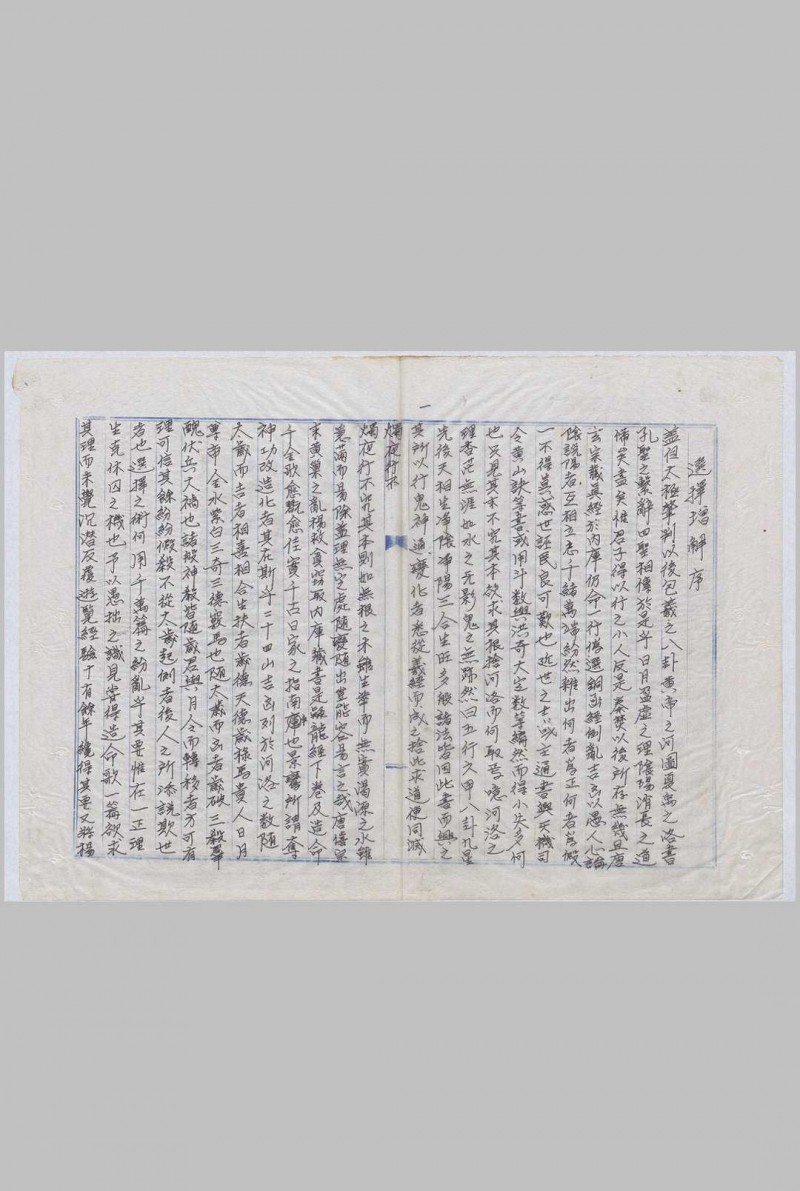 選擇增解序
蓋但太極肇判以後包羲之八卦黃帝之河圖夏禹之洛書
孔聖之繫辭四聖相傳於是乎日月盈虛之理陰陽消長之道
備矣盡矣惟君子得以行之小人反是秦焚以後所存無幾且唐
玄宗藏眞經於內庫仍命一行僞選銅函經倒亂吉凶以愚人心論
陰說陽者互相立志千緖萬端紛然雜出何者爲正何者爲假
一不得其惑世誣民良可歎也近世之士或主通書與天機司
令黃山訣等書或用斗數與洪奇大定數等 然而得小失多何
也只見其末不究其本欲求其根捨河洛而何取哉噫河洛之
理杳茫無涯如水之无影鬼之無跡然曰五行六甲八卦九星
先後天相生淨陰淨陽三合生旺多般諸法皆因此書而興之
其所以行鬼神通變化者悉從羲經而成之捨此求道便同滅
燭夜行不
燭夜行不究其本則如無根之木雖生華而無實渴源之水雖
流 而易除蓋理無定處隨變隨出豈能容易言之哉唐僖宗
末黃巢之亂楊救貧竊取內庫藏書是 龍經下卷及造命
千金歌愈翫愈佳實千古日家之指南車也景鸞所謂奪
神功改造化者其在斯乎二十四山吉凶列於河洛之數隨
太歲而吉者相喜相合生扶者歲德天德歲祿馬貴人日月
尊帝金水紫白三奇三德竅馬也隨太歲而凶者歲破三殺
醜伏兵大禍也諸殺神殺皆隨歲君與月令而轉移者方可有
理可信其餘紛紛假殺不從太歲起例者後人之所添說欺世
者也選擇之術何用千萬篇之紛亂乎其要惟在一正理
生克休囚之機也予以愚拙之識見妄得造命歌一篇欲求
其理而未覺沉潛反覆遊覽經驗十有餘年纔得其要又將楊